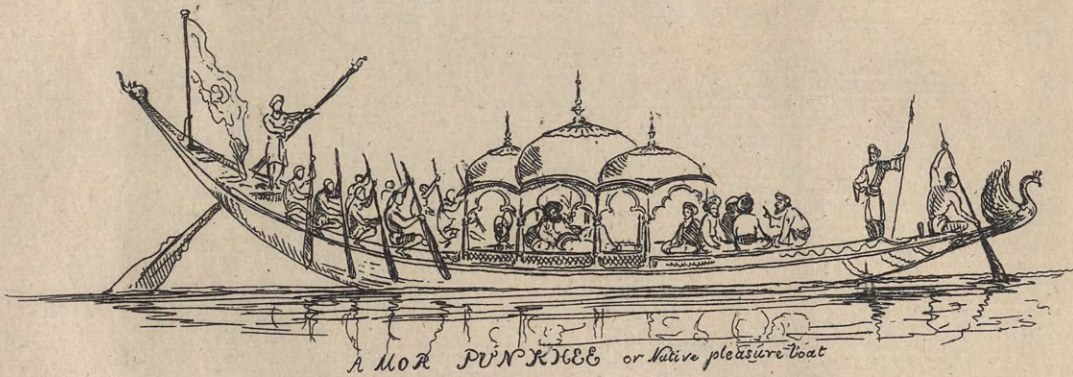 A MOR PUNKHEE or Native pleasure boat